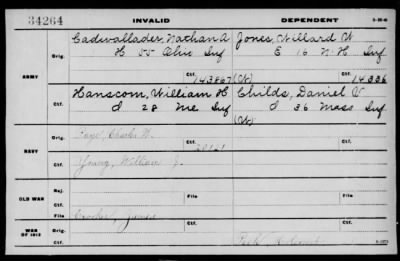 34264
INVALID
DEPENDENT
3-M-6
ARMY
Orig.
Cadwallader, Nathan A
Jones, Willard W
H 55 Ohio Inf
E 16 N.H Inf
Ctf.
143867
(W)
14336
Ctf.
Hanscom, William H
Childs, Daniel V
I 28 Me Inf
I 36 Mass Inf
(W)
NAVY
Orig.
Page, Charles W.
Ctf.
20121
Ctf.
Young, William J.
OLD WAR
Rej.
File
File
Ctf.
Crocker, James
Ctf.
WAR OF 1812
Ctf.